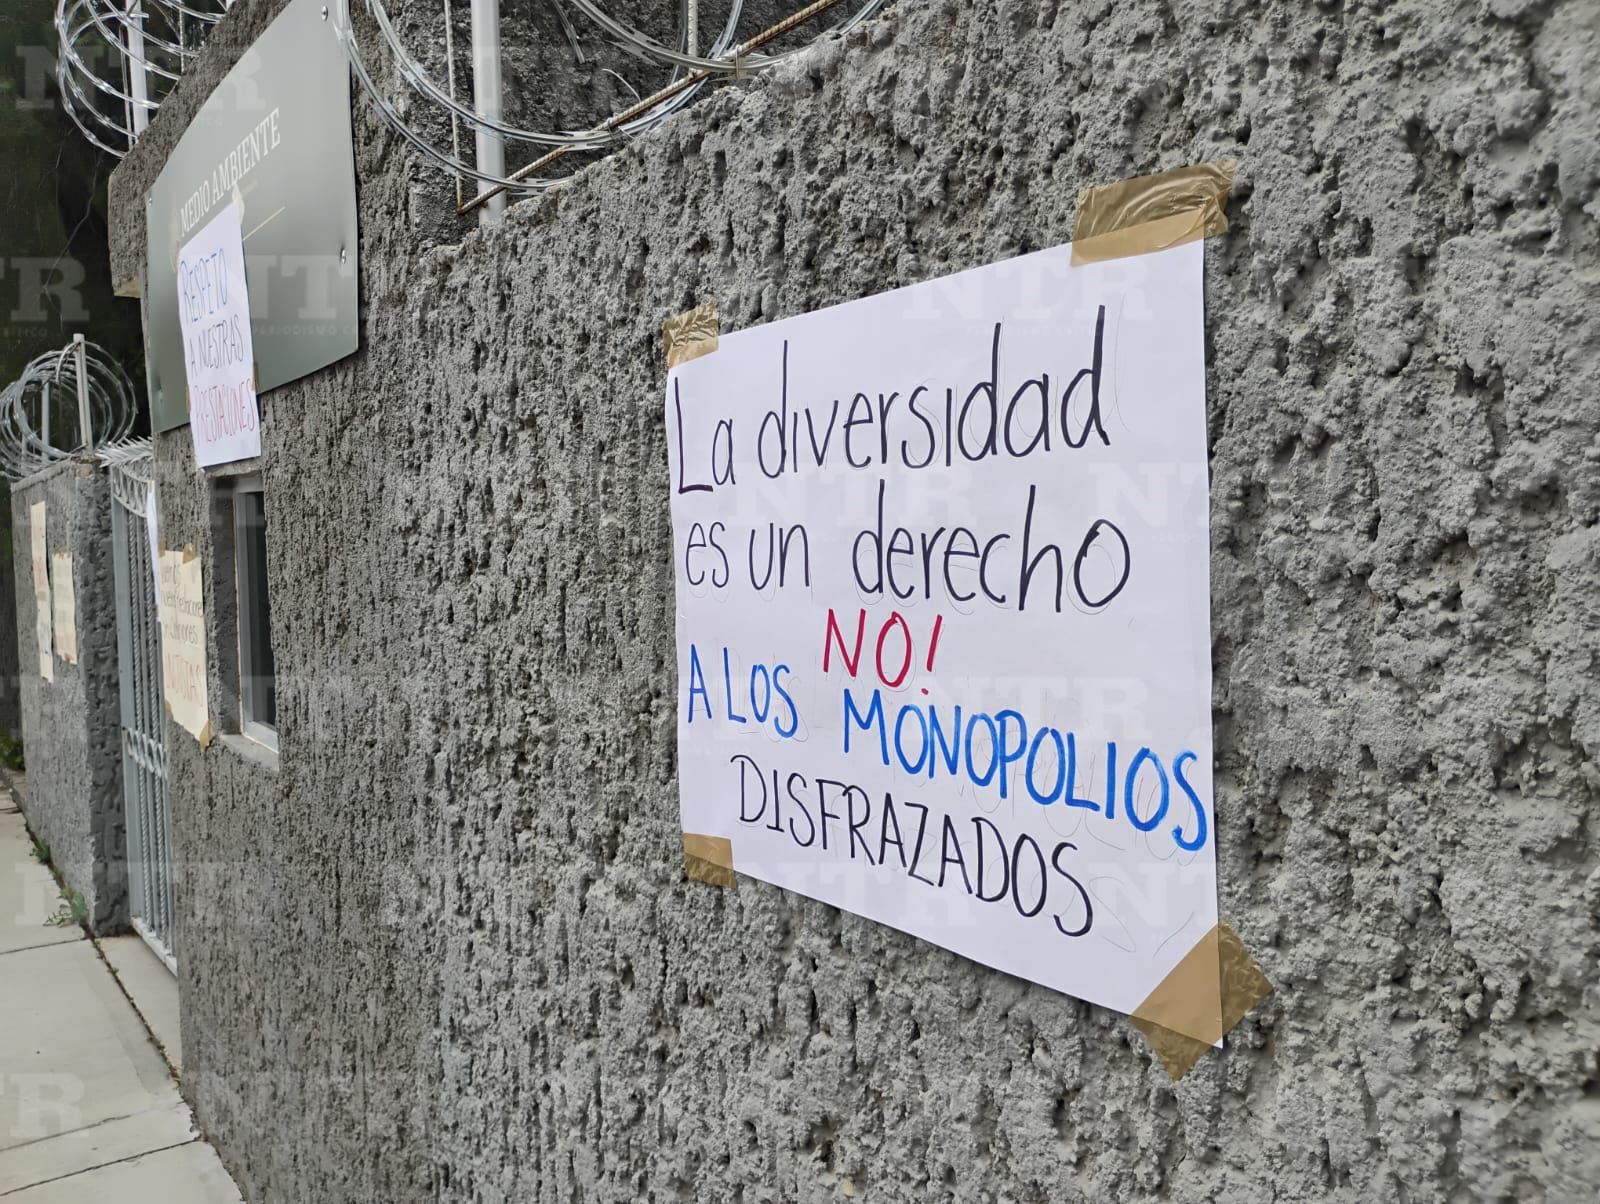 MEDIO AMBIENTE
RESPETO
A NUESTRAS
PRESTACIONES
La diversidad
es un derecho
NO!
A LOS MONOPOLIOS
DISFRAZADOS
NTR
PERIODISMO CRÍTICO